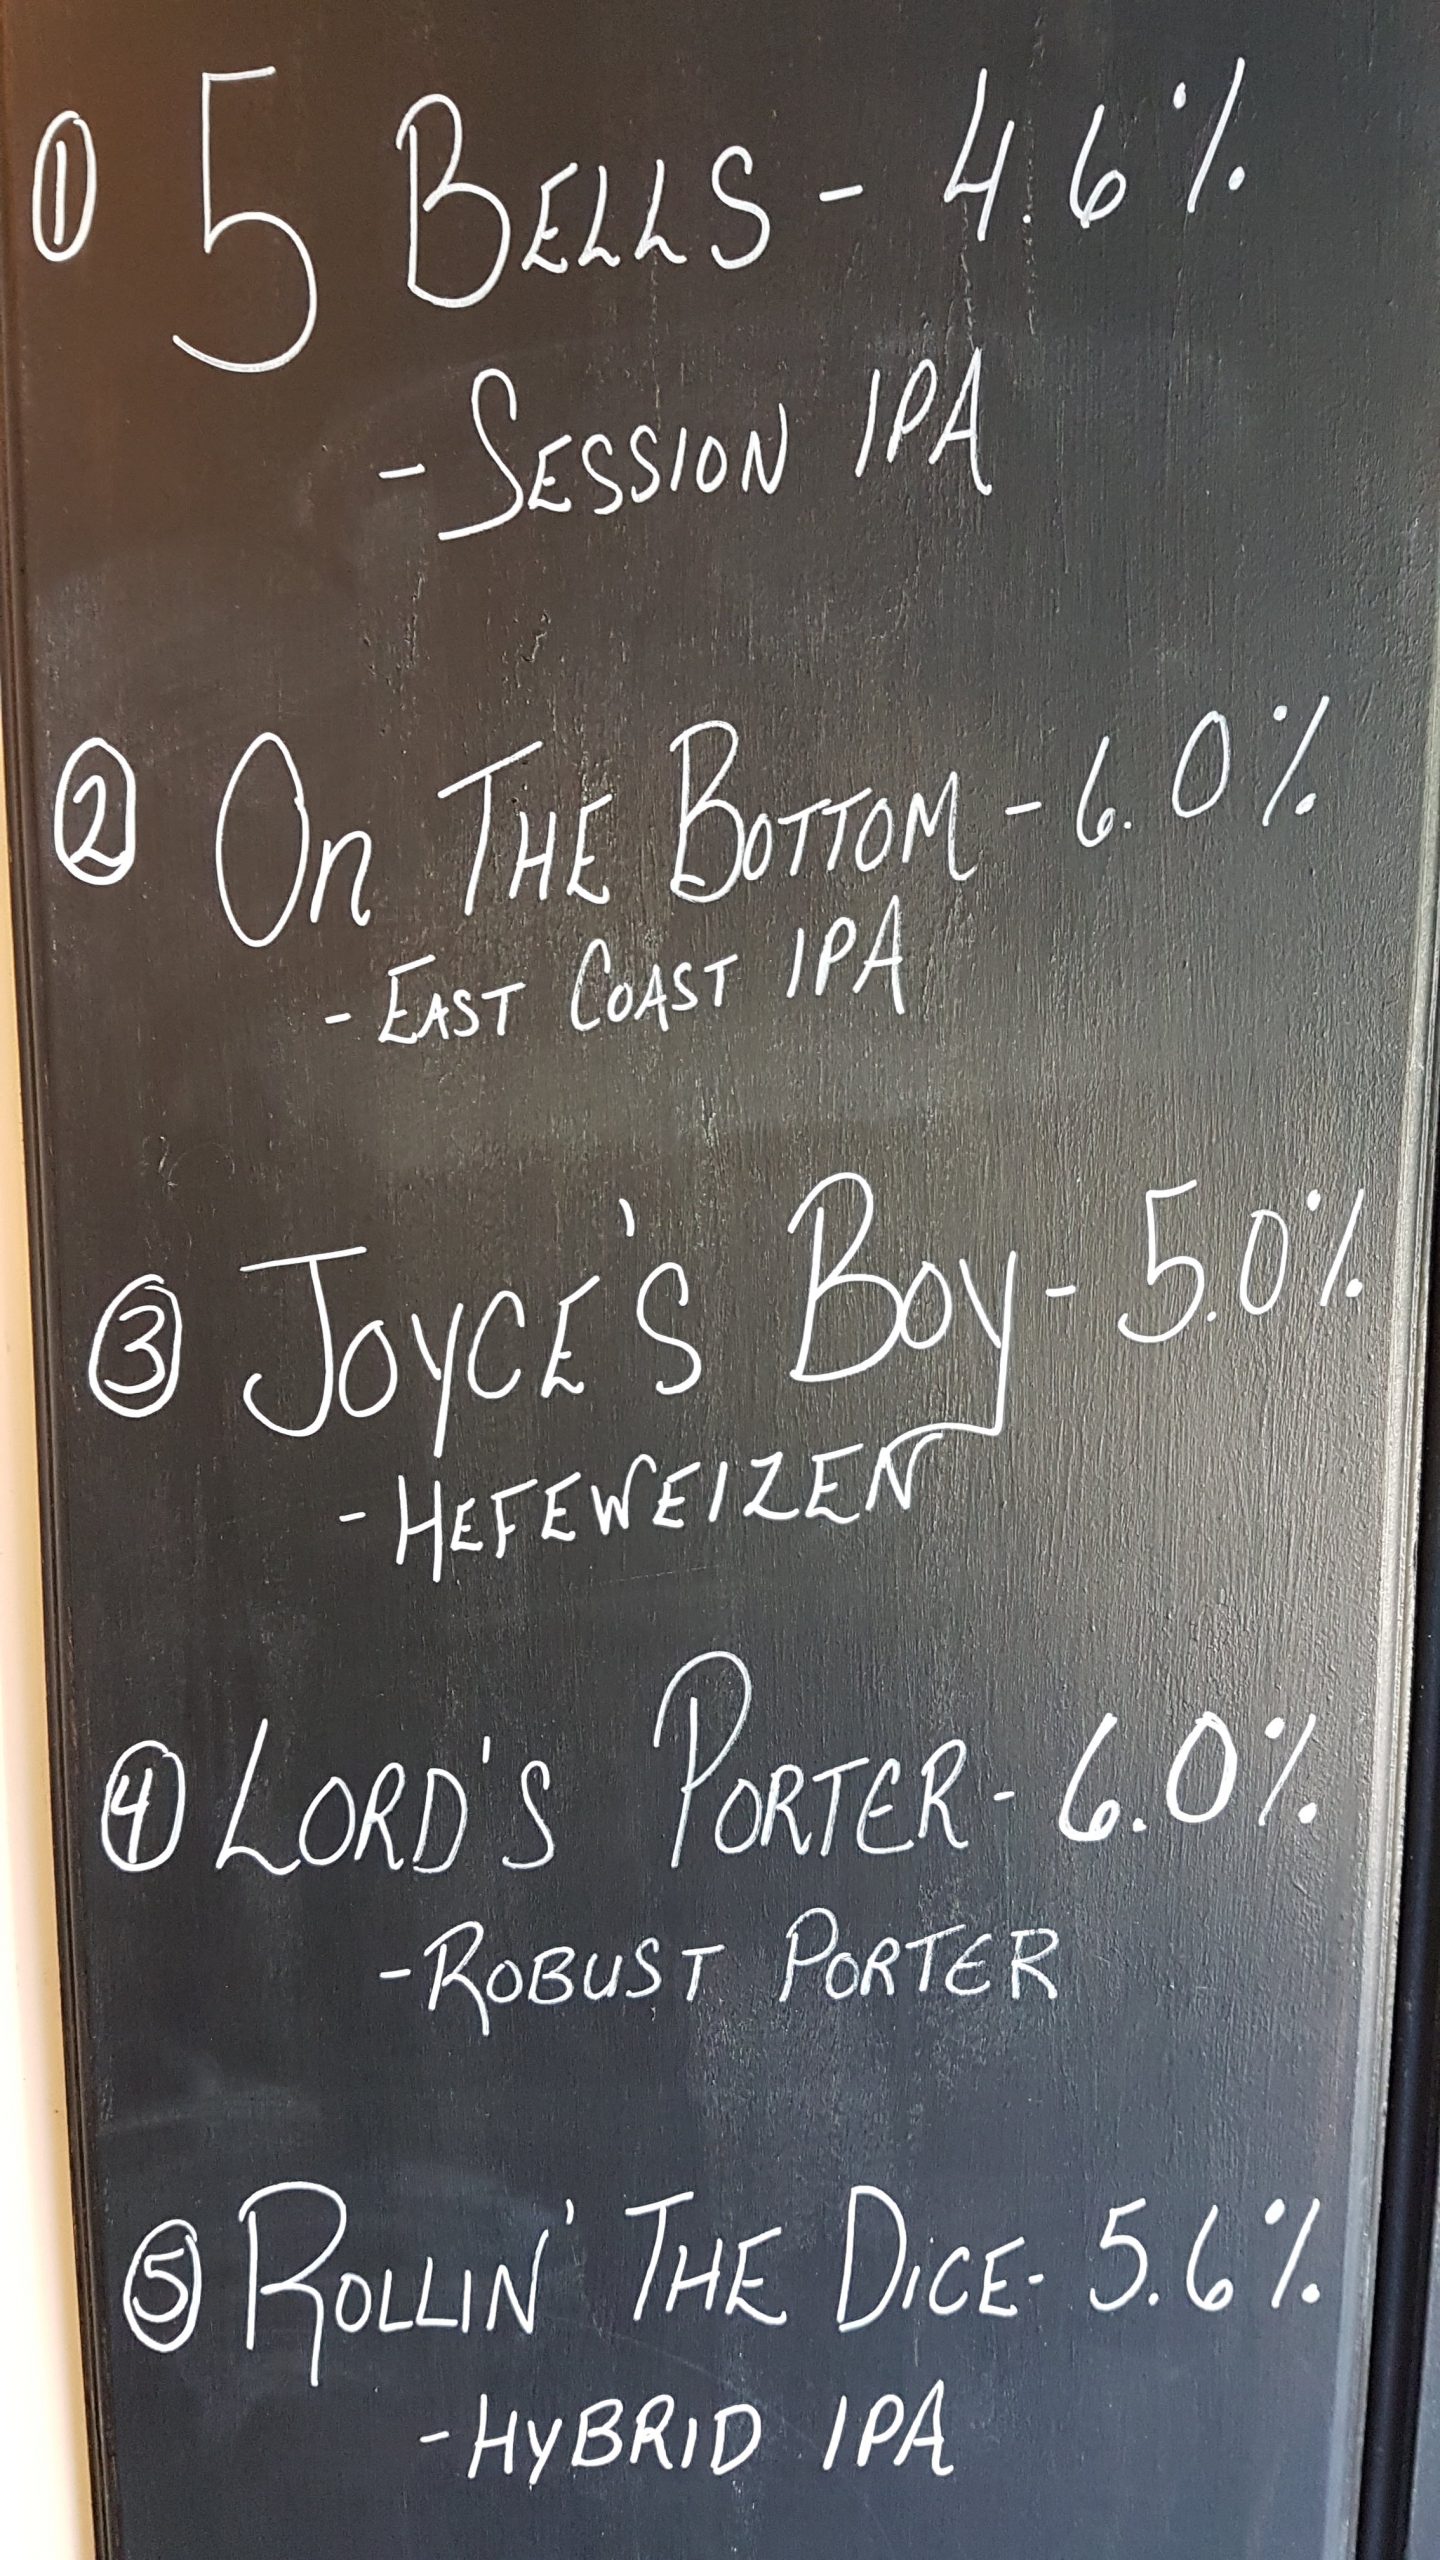 ① 5 BELLS - 4.6%
- SESSION IPA
② On THE BOTTOM - 6.0%
- EAST COAST IPA
③ JOYCE'S BOY - 5.0%
- HEFEWEIZEN
④ LORD'S PORTER - 6.0%
- ROBUST PORTER
⑤ ROLLIN' THE DiCE - 5.6%
- HYBRID IPA